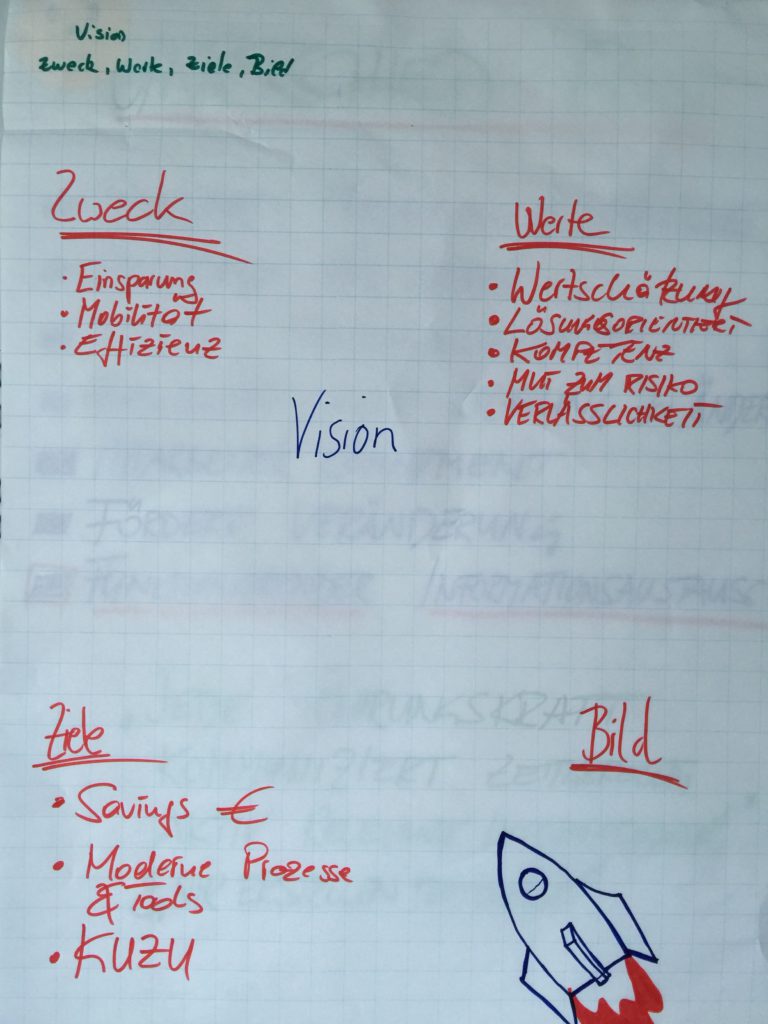 Vision
Zweck, Werte, Ziele, Bild
Zweck
• Einsparung
• Mobilität
• Effizienz
Werte
• Wertschätzung
• LÖSUNGSORIENTIERT
• KOMPETENZ
• MUT ZUM RISIKO
• VERLÄSSLICHKEIT
Vision
FÖRDERT VERÄNDERUNG
INFORMATIONSAUSTAUSCH
Ziele
• Savings €
• Moderne Prozesse
& Tools
• KUZU
Bild